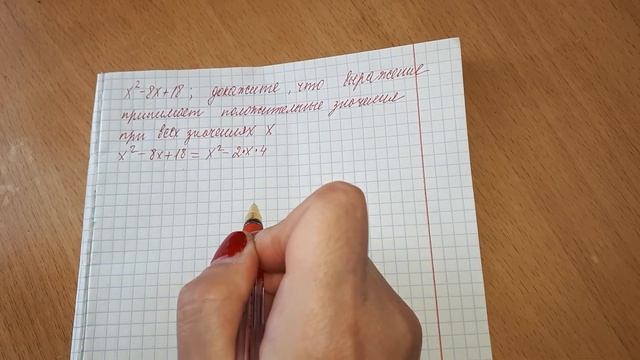 x²-8x+18; докажите, что выражение
принимает положительные значения
при всех значениях x
x²-8x+18=x²-2·x·4